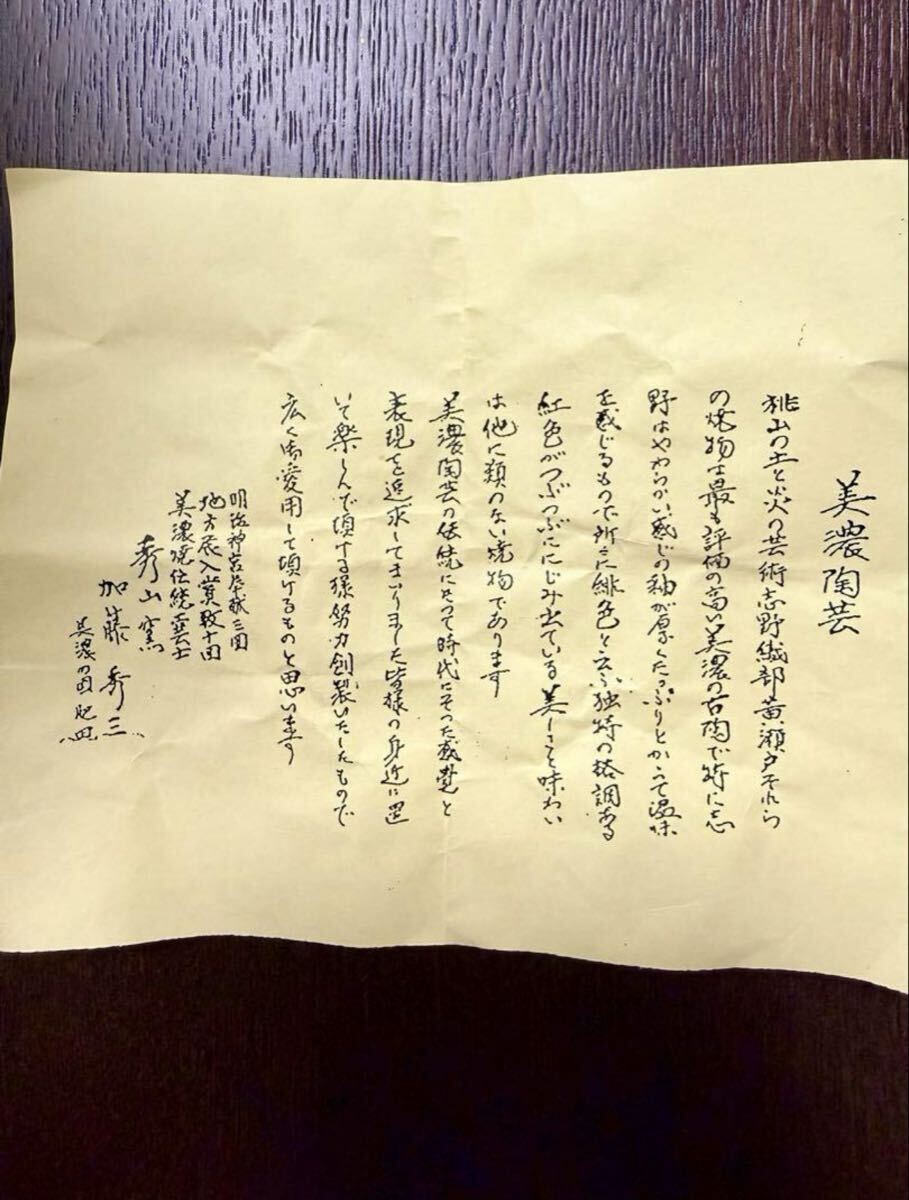 美濃陶芸
桃山の土と炎の芸術志野織部黄瀬戸それら
の焼物は最も評価の高い美濃の古陶で特に志
野はやわらかい感じの釉が厚くたっぷりとかかって温味
を感じるもので所々に緋色と云ふ独特の格調ある
紅色がつぶつぶににじみ出ている美しさと味わい
は他に類のない焼物であります
美濃陶芸の伝統にそって時代にそった感覚と
表現を追求してまいりました皆様の身近に置
いて楽しんで頂ける様努力創製いたしたもので
広く御愛用して頂けるものと思います
明治神宮奉献三回
地方展入賞数十回
美濃焼伝統工芸士
秀山窯
加藤秀三
美濃の国